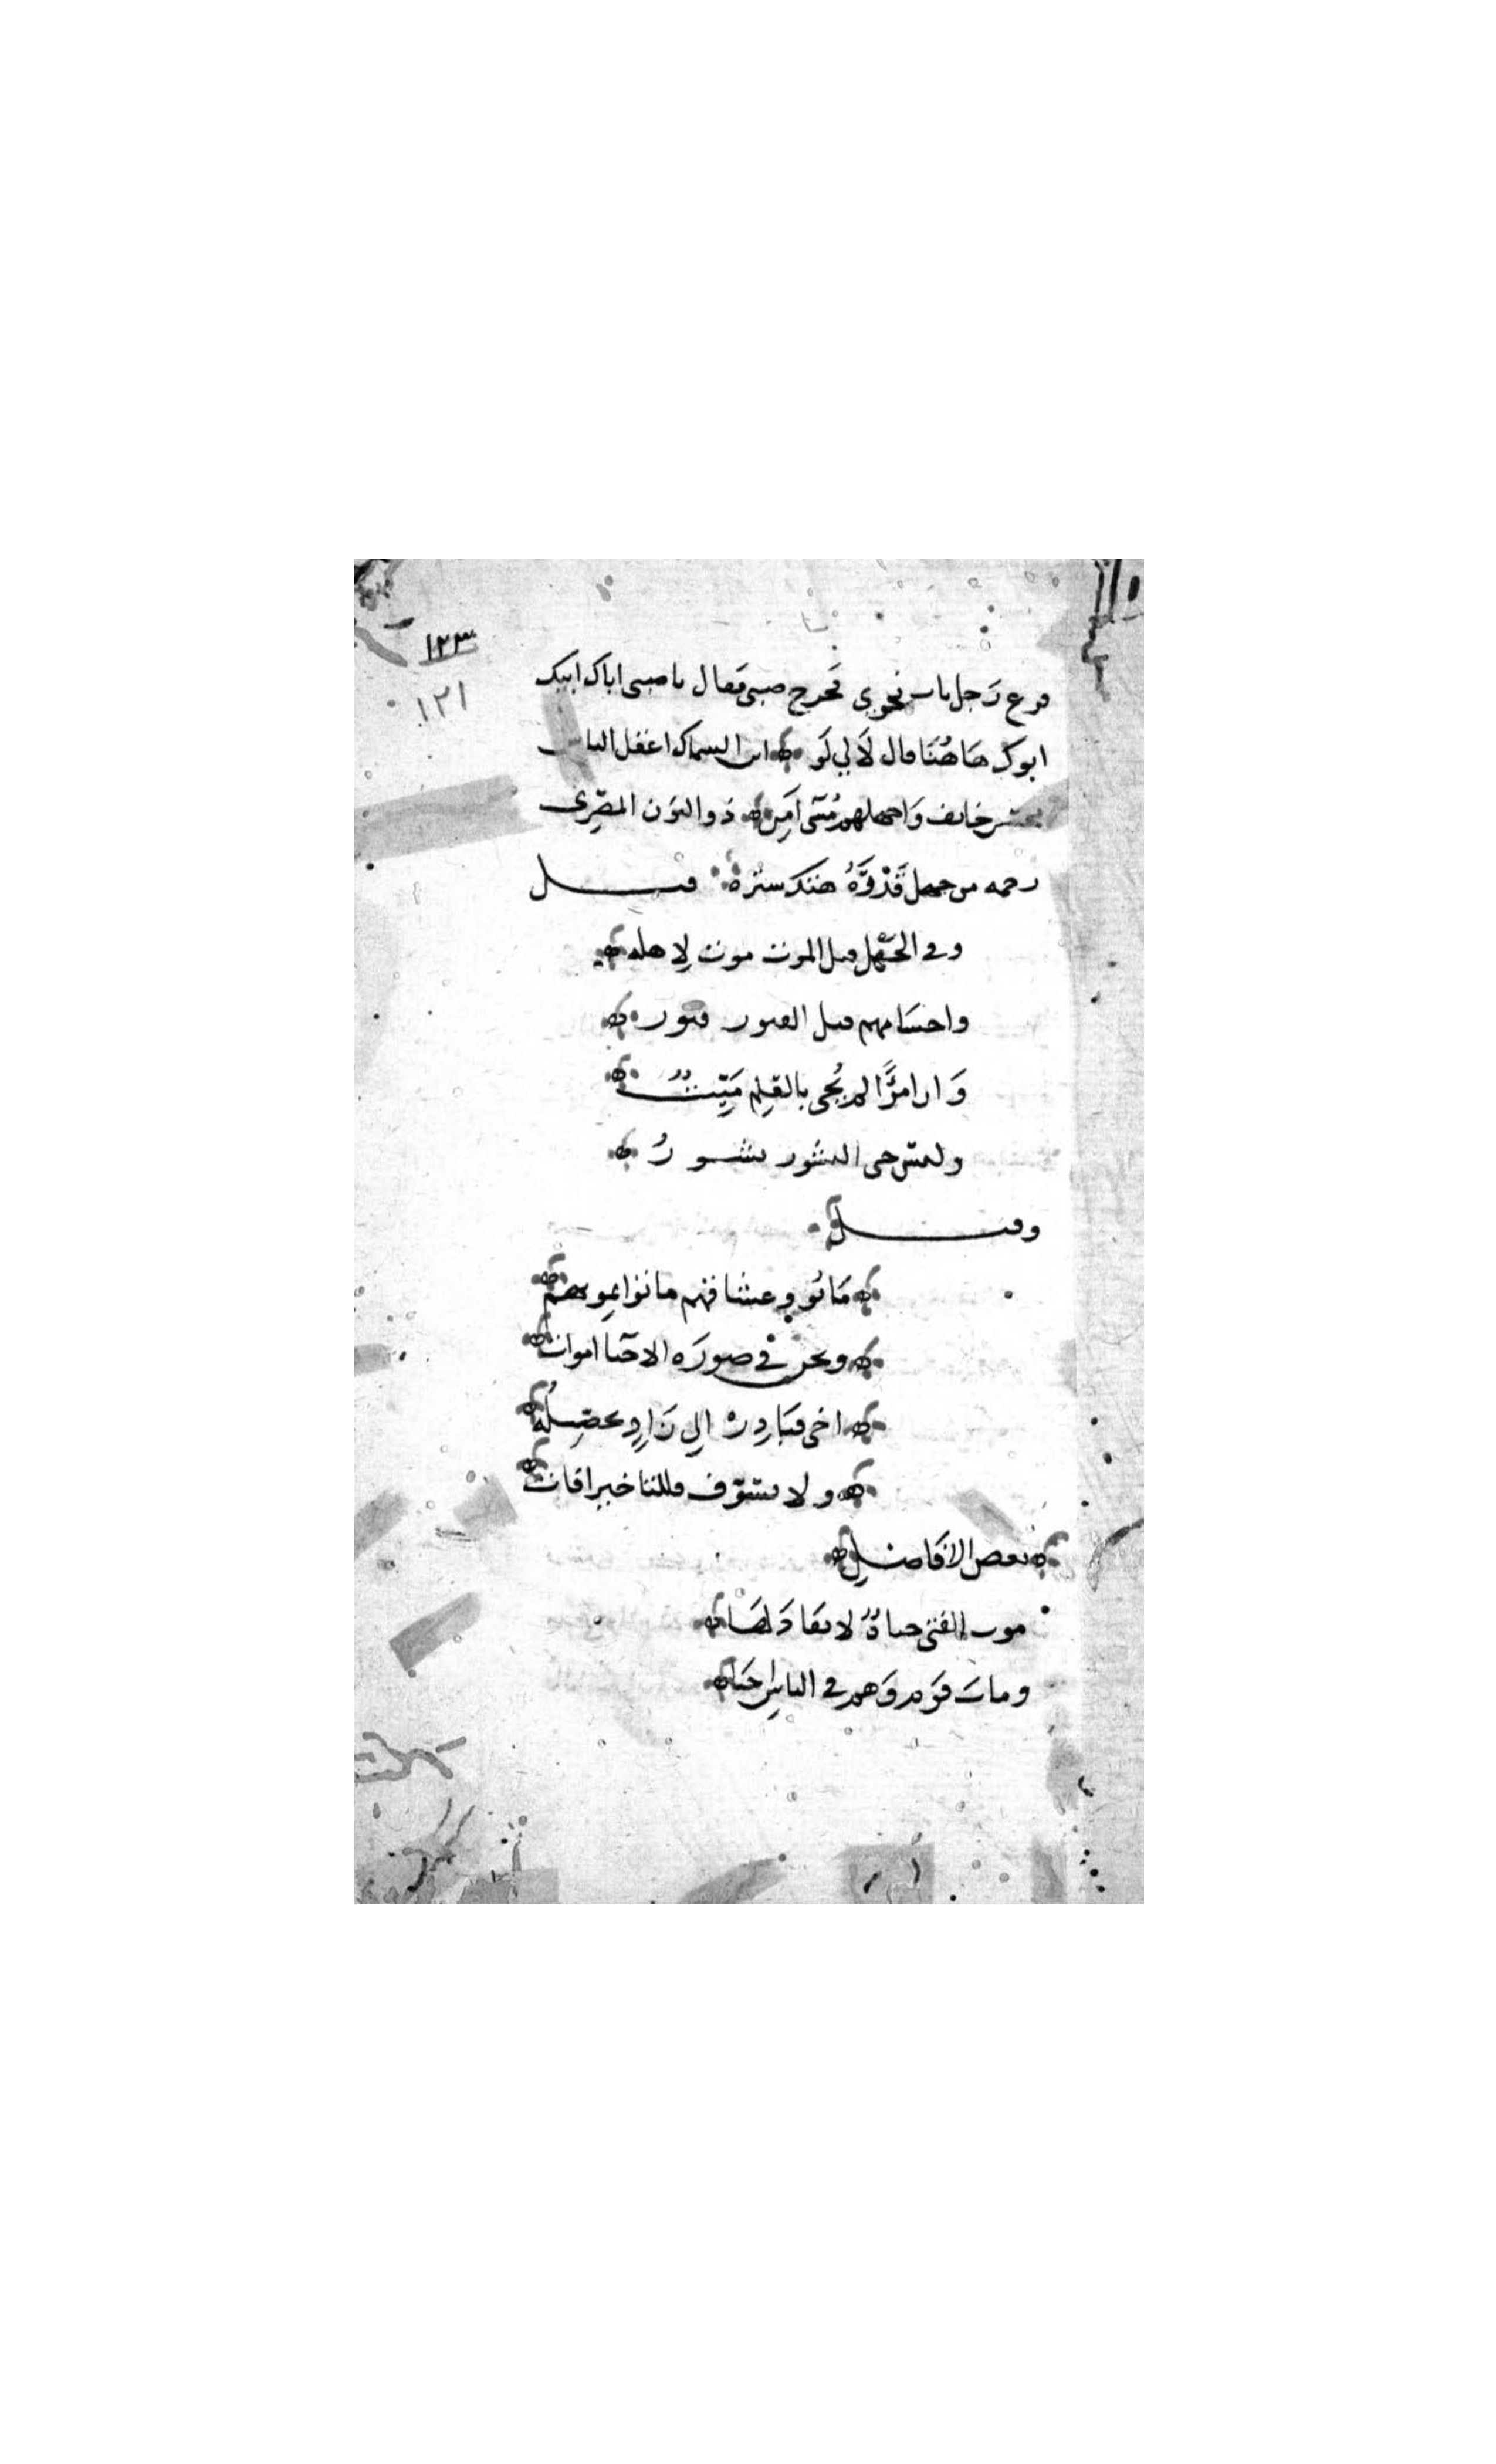 ١٢٣
١٢١
قرع رجل باب نحوي فخرج صبي فقال يا صبي اباك ابيك
ابوك هَاهُنَا قال لَا لي لَو ابن السماك اغفل الناس
خايف وَاجهلهم مُسِيّ اَمِن ذو النون المصري
رحمه من جهل قَدْرَهُ هتك ستره قيل
وفي الجَهْلِ قبل الموت موت لِاهله
واجسَامهم قبل القبور قبور
وَان امرًَا لم يُحي بالعِلم مَيِّتٌ
وليس حتى النشور نشورُ
وقيل
مَاتو وعشنا فهم ماتوا بموتهم
ونحن في صورَه الاحيَا اموات
اخي فبَادِرْ اِلي زَادٍ تحصِّلُه
ولا تسَوّف فللتاخير افات
بعض الافاضِل
موت الفتى حياةٌ لا نفادَ لهَا
وماتَ قَوم وَهم في الناسِ احيَا